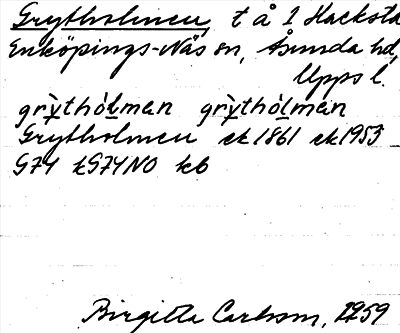 Grytholmen, t å 1 Hacksta
Enköpings-Näs sn, Åsunda hd,
Upps l.
grỳthólman grỳthólman
Grytholmen ek 1861 ek 1953
G74 kG74NO kb
Birgitta Carlsson, 1959